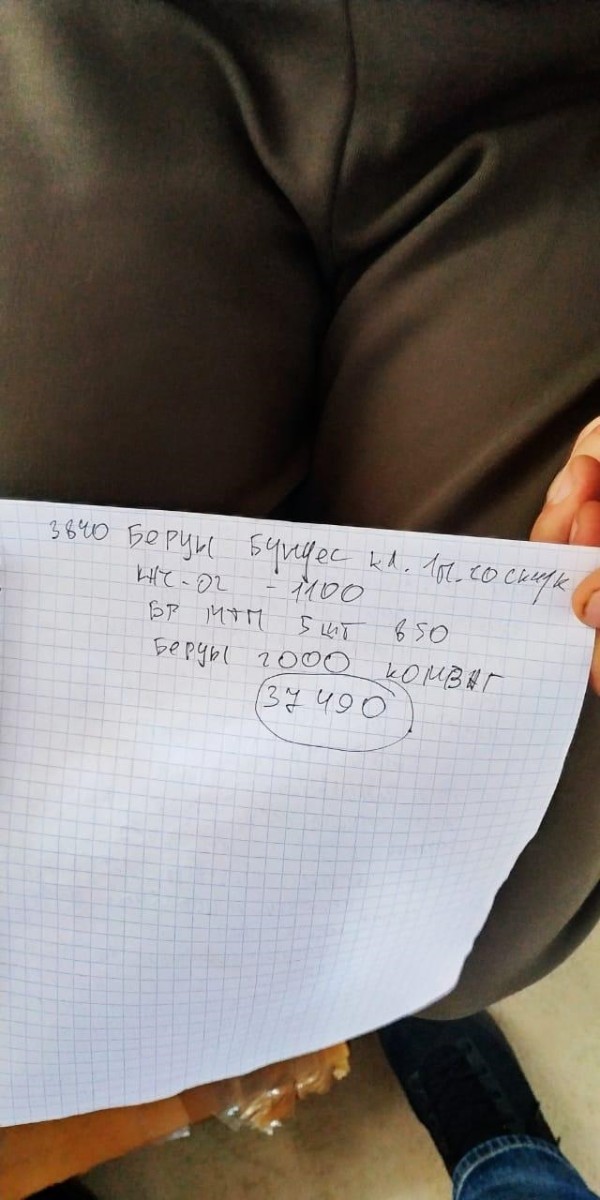 3840 Беруы Бундес кл. 1п.
КНС-02 - 1100
БР МТП 5 шт 850
Беруы 2000 КОМВАГ
37490